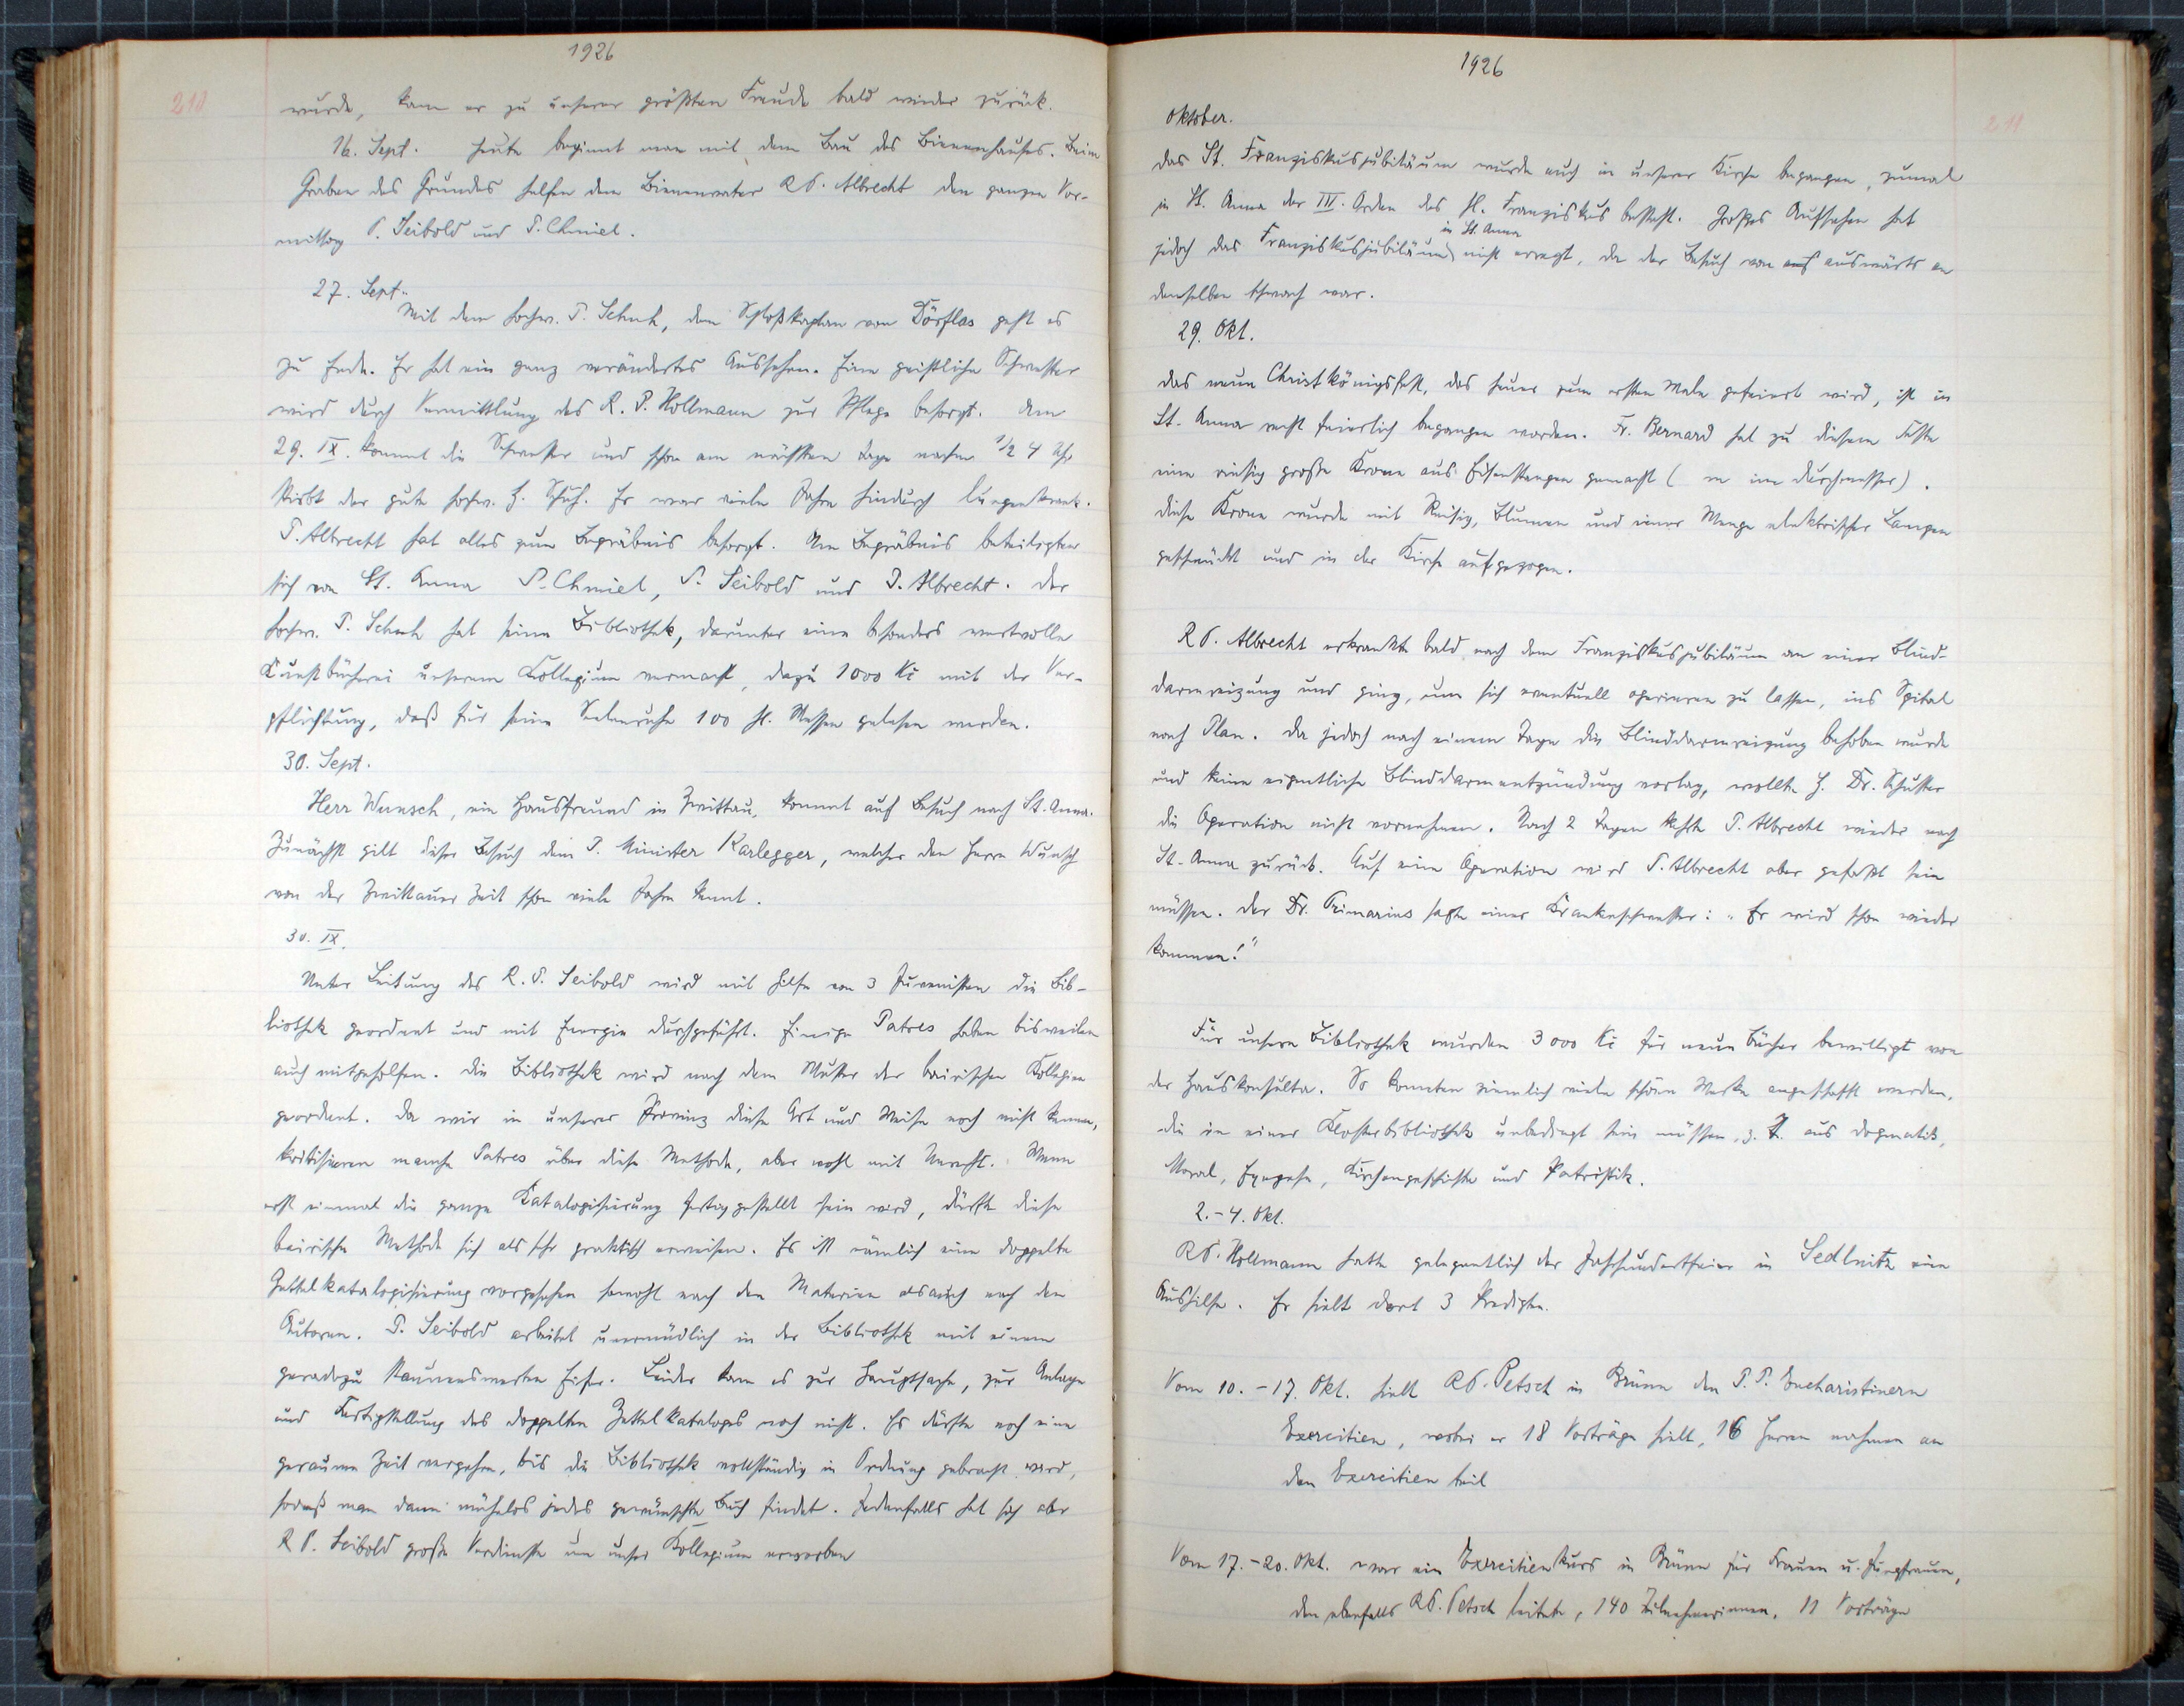 1926
210
wurde, kam er zu unserer größten Freude bald wieder zurück.
16. Sept. Heute beginnt man mit dem Bau des Bienenhauses. Beim
Graben des Grundes helfen dem Bienenvater R P. Albrecht den ganzen Vor-
mittag P. Seibold und P. Chmiel.
27. Sept.
Mit dem hochw. P. Schuh, dem Schloßkaplan von Dörflas geht es
zu Ende. Er hat ein ganz verändertes Aussehen. Eine geistliche Schwester
wird durch Vermittlung des R. P. Hollmann zur Pflege besorgt. Am
29. IX. kommt die Schwester und schon am nächsten Tage nachm 1/2 4 Uhr
stirbt der gute hochw. H. Schuh. Er war viele Jahre hindurch lungenkrank.
P. Albrecht hat alles zum Begräbnis besorgt. Am Begräbnis beteiligten
sich von St. Anna P. Chmiel, P. Seibold und P. Albrecht. Der
hochw. P. Schuh hat seine Bibliothek, darunter eine besonders wertvolle
Kunstbücherei unserem Kollegium vermacht, dazu 1000 Kč mit der Ver-
pflichtung, daß für seine Seelenruhe 100 hl. Messen gelesen werden.
30. Sept.
Herr Wunsch, ein Hausfreund in Zwittau, kommt auf Besuch nach St. Anna.
Zunächst gilt dieser Besuch dem P. Minister Karlegger, welcher den Herrn Wunsch
von der Zwittauer Zeit schon viele Jahre kennt.
30. IX.
Unter Leitung des R. P. Seibold wird mit Hilfe von 3 Juvenisten die Bib-
liothek geordnet und mit Energie durchgeführt. Einige Patres haben bisweilen
auch mitgeholfen. Die Bibliothek wird nach dem Muster der bairischen Kollegien
geordnet. Da wir in unserer Provinz diese Art und Weise noch nicht kennen,
kritisieren manche Patres über diese Methode, aber wohl mit Unrecht. Wenn
erst einmal die ganze Katalogisierung fertiggestellt sein wird, dürfte diese
bairische Methode sich als sehr praktisch erweisen. Es ist nämlich eine doppelte
Zettelkatalogisierung vorgesehen sowohl nach den Materien als auch nach den
Autoren. P. Seibold arbeitet unermüdlich in der Bibliothek mit einem
geradezu staunenswerten Eifer. Leider kam es zur Hauptsache, zur Anlage
und Fertigstellung des doppelten Zettelkataloges noch nicht. Es dürfte noch eine
geraume Zeit vergehen, bis die Bibliothek vollständig in Ordnung gebracht wird,
sodaß man dann mühelos jedes gewünschte Buch findet. Jedenfalls hat sich aber
R P. Seibold große Verdienste um unser Kollegium erworben
1926
211
Oktober.
Das St. Franziskusjubiläum wurde auch in unserer Kirche begangen, zumal
in St. Anna der III. Orden des hl. Franziskus besteht. Großes Aufsehen hat
jedoch das Franziskusjubiläum in St. Anna nicht erregt, da der Besuch von auswärts an
demselben schwach war.
29. Okt.
Das neue Christkönigsfest, das heuer zum ersten Male gefeiert wird, ist in
St. Anna recht feierlich begangen worden. Fr. Bernard hat zu diesem Feste
eine riesig große Krone aus Eisenstangen gemacht ( m im Durchmesser).
Diese Krone wurde mit Reisig, Blumen und einer Menge elektrischer Lampen
geschmückt und in der Kirche aufgezogen.
R P. Albrecht erkrankte bald nach dem Franziskusjubiläum an einer Blind-
darmreizung und ging, um sich eventuell operieren zu lassen, ins Spital
nach Plan. Da jedoch nach einem Tage die Blinddarmreizung behoben wurde
und keine eigentliche Blinddarmentzündung vorlag, wollte H. Dr. Schuster
die Operation nicht vornehmen. Nach 2 Tagen kehrte P. Albrecht wieder nach
St. Anna zurück. Auf eine Operation wird P. Albrecht aber gefaßt sein
müssen. Der Dr. Primarius sagte einer Krankenschwester: "Er wird schon wieder
kommen!"
Für unsere Bibliothek wurden 3000 Kč für neue Bücher bewilligt von
der Hauskonsulta. So konnten ziemlich viele schöne Werke angeschafft werden,
die in einer Klosterbibliothek unbedingt sein müssen, z. T. aus Dogmatik,
Moral, Exegese, Kirchengeschichte und Patristik.
2.-4. Okt.
R P. Hollmann hatte gelegentlich der Jahrhundertfeier in Sedlnitz eine
Aushilfe. Er hielt dort 3 Predigten.
Vom 10.-17. Okt. hielt R P. Petsch in Brünn den P. P. Eucharistinern
Exercitien, wobei er 18 Vorträge hielt, 16 Herren nahmen an
den Exercitien teil
Vom 17.-20. Okt. war ein Exercitienkurs in Brünn für Frauen u. Jungfrauen,
den ebenfalls R P. Petsch leitete, 140 Teilnehmerinnen, 11 Vorträge